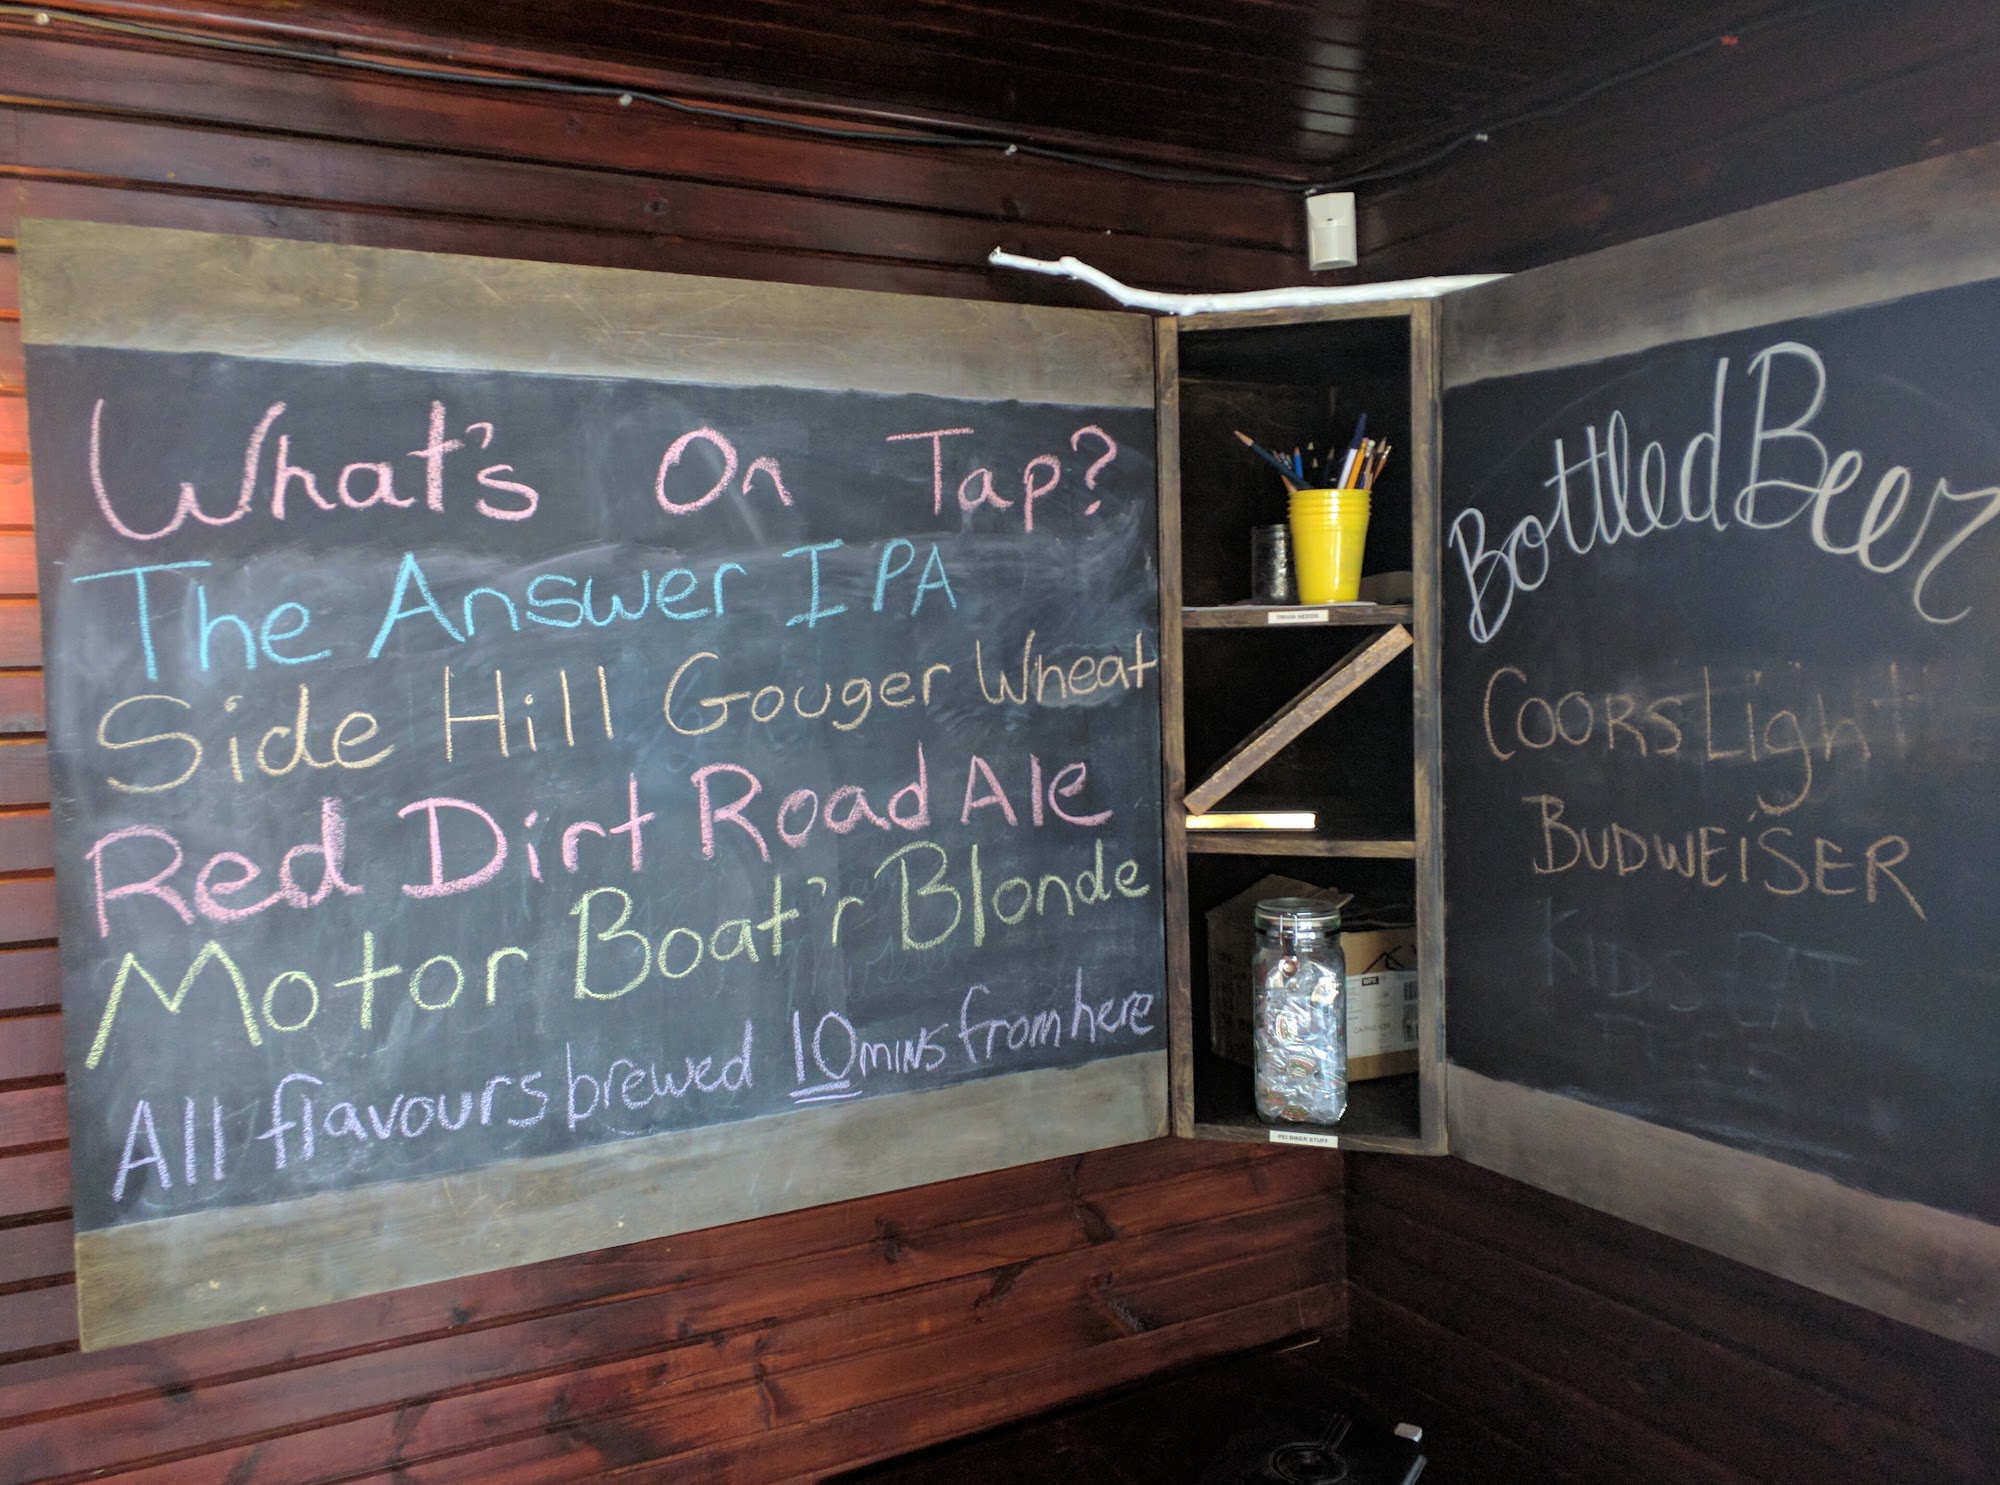 What's On Tap?
The Answer IPA
Side Hill Gouger Wheat
Red Dirt Road Ale
Motor Boat'r Blonde
All flavours brewed 10 mins from here
TRIVIA NEEDS
PEI BIKER STUFF
Bottled Beer
COORS Light
BUDWEiSER
KIDS